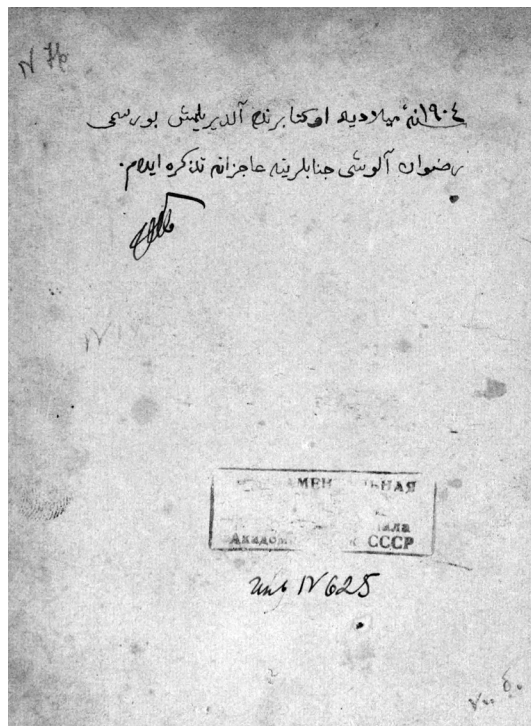 N 76
١٩٠٤نهٔ ميلاديه اوكتابرنده آلديريلمش بو رسمى
رضوان آلوشى جنابلرينه عاجزانه تذكره ايدرم.
СССР
инв N 625